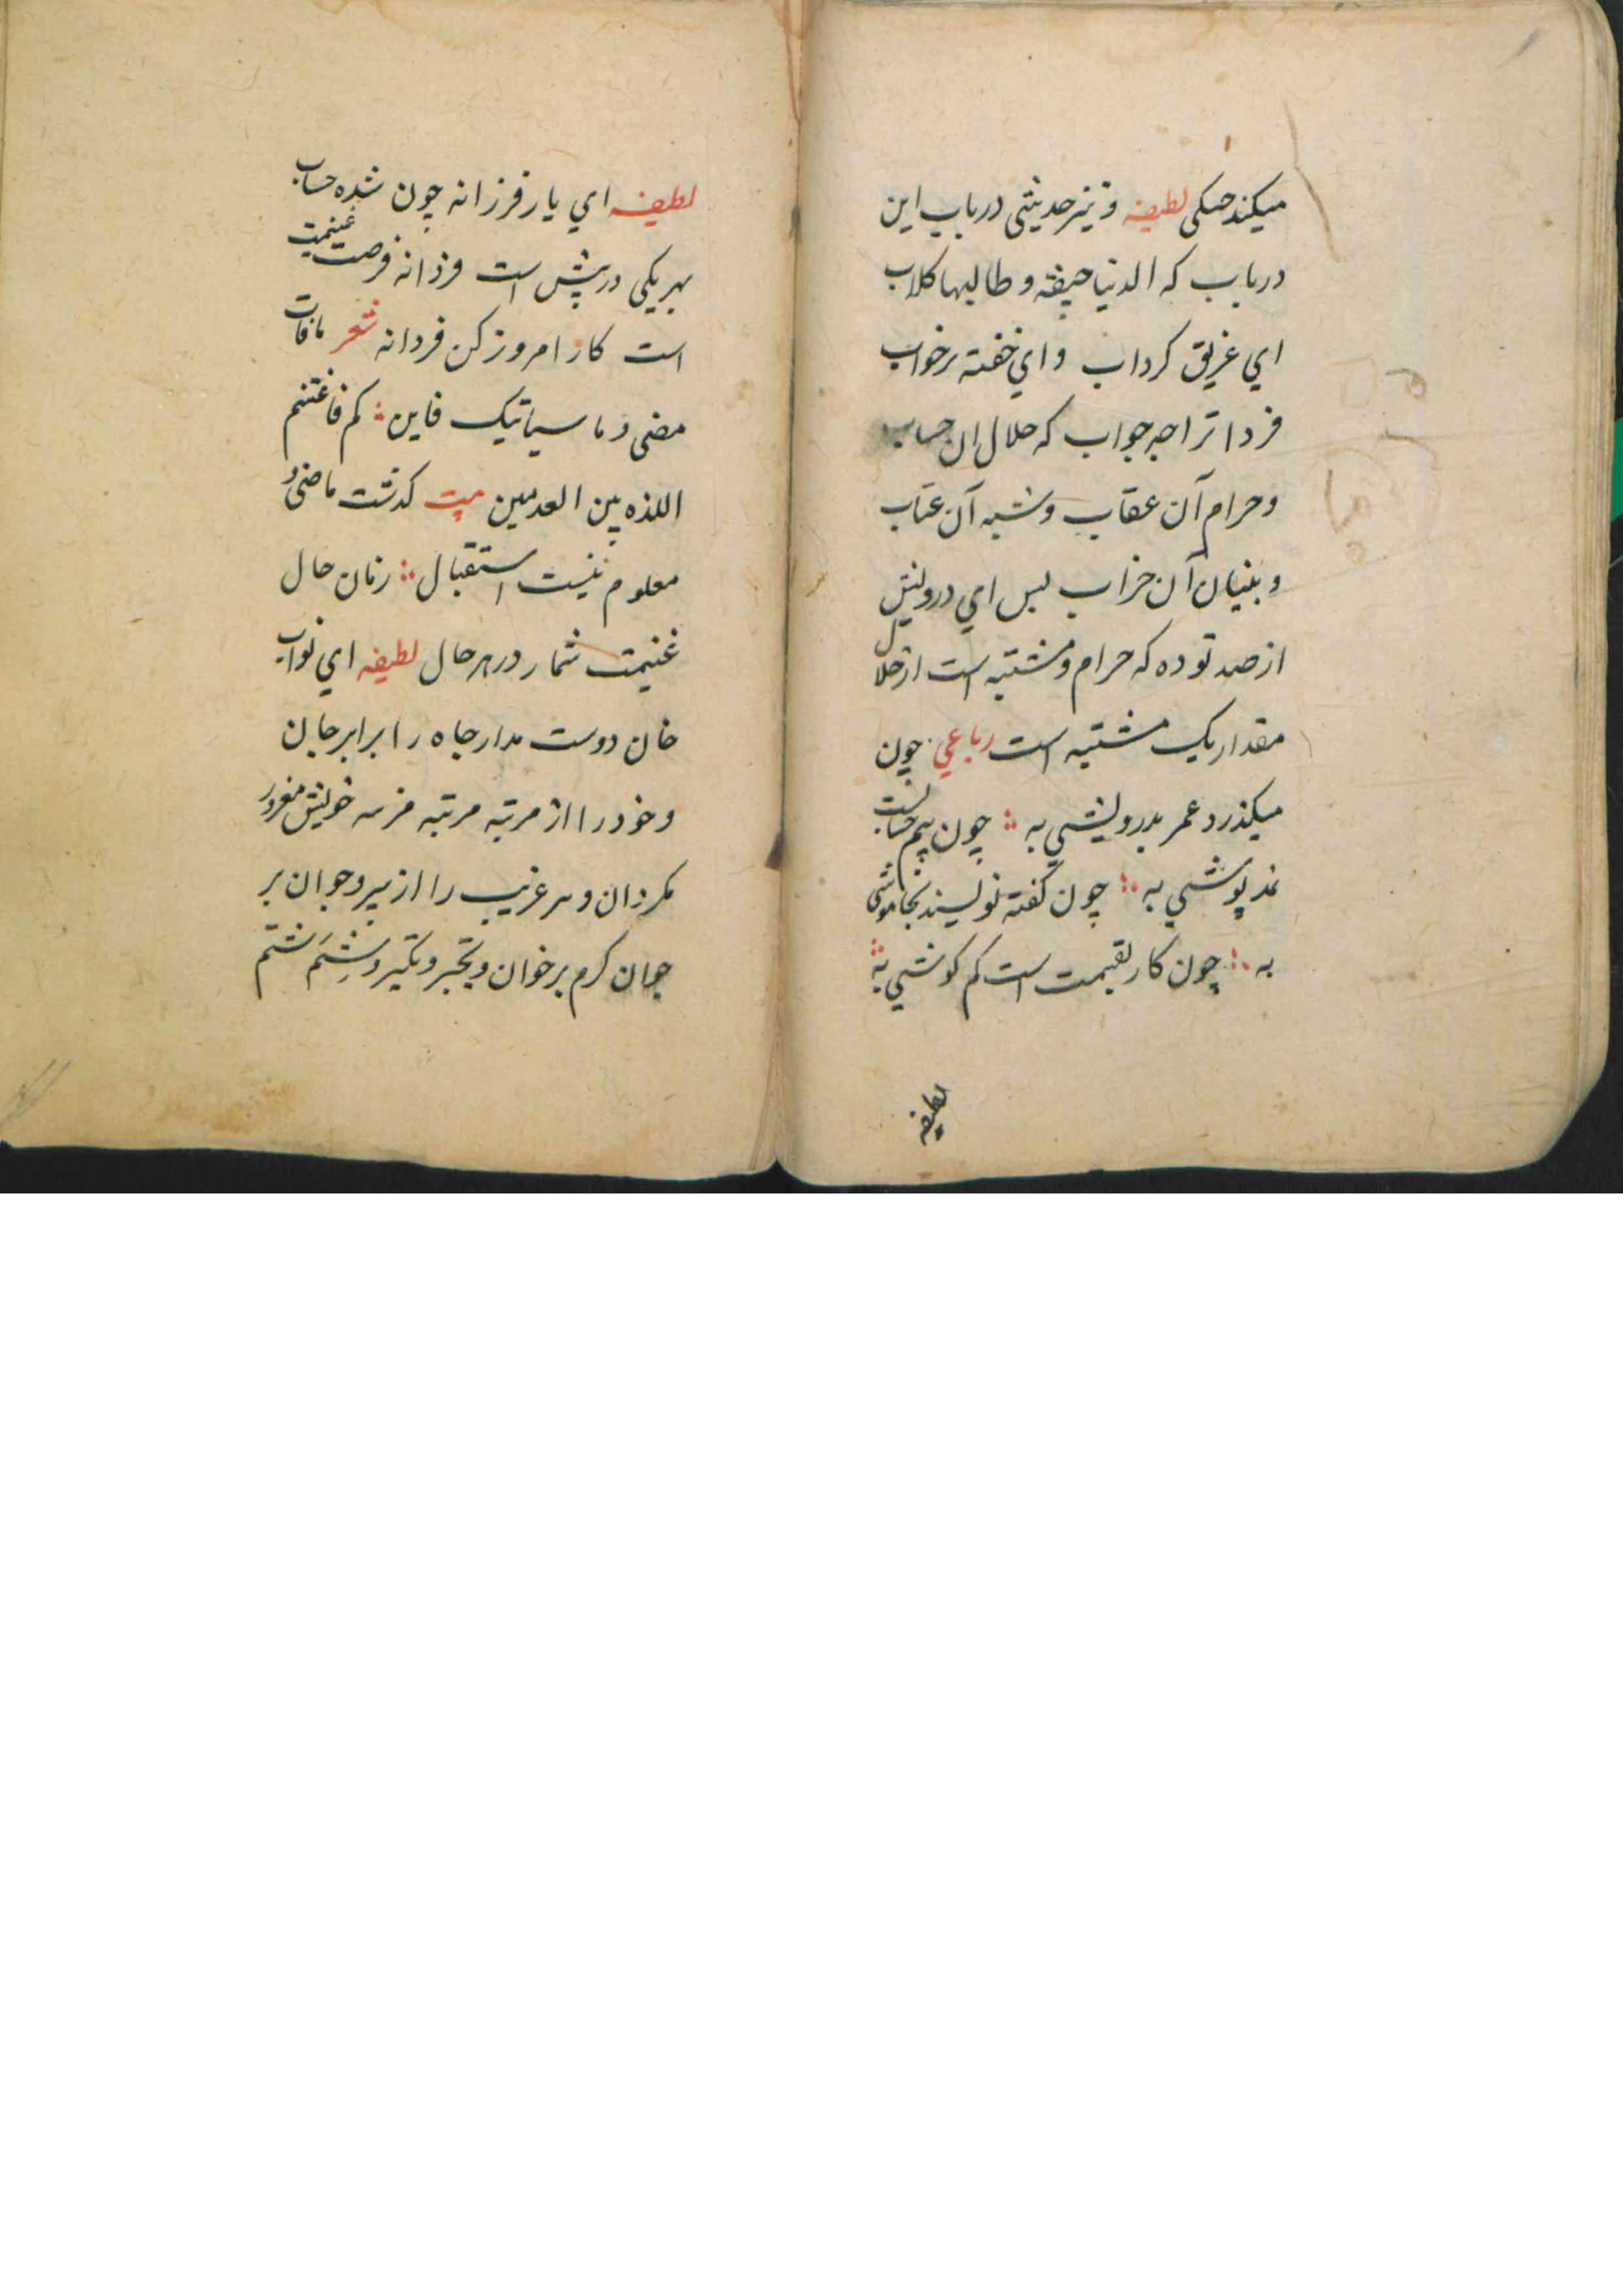 میکند حسکی لطیفه و نیز حدیثی در باب این
دریاب که الدنیا جیفة و طالبها کلاب
ای غریق کرداب و ای خفته بر خواب
فردا ترا چه جواب که حلال ان حساب
و حرام آن عقاب و شبه آن عتاب
و بنیان آن خراب بس ای درویش
از صد توده که حرام و مشتبه است از حلال
مقدار یک مشتبه است رباعی چون
میکذرد عمر بدرویشی به چون بیم حسابست
نمد پوشی به چون کفته نویسند بخاموشی
به چون کار بقیمت است کم کوشی به
لطیفه
لطیفه ای یار فرزانه چون شده حساب
بهر یکی در پیش است فرزانه فرصت غنیمت
است کار امروز کن فردا نه شعر ما فات
مضی و ما سیاتیک فاین کم فاغتنم
اللذه بین العدمین بیت کذشت ماضی و
معلوم نیست استقبال زمان حال
غنیمت شمار در هر حال لطیفه ای نواب
خان دوست مدار جاه را برابر جان
و خود را از مرتبه مرتبه خویش مغرور
مکردان و هر غریب را از پیر و جوان بر
خوان کرم برخوان و تجبر و تکبر و شتم